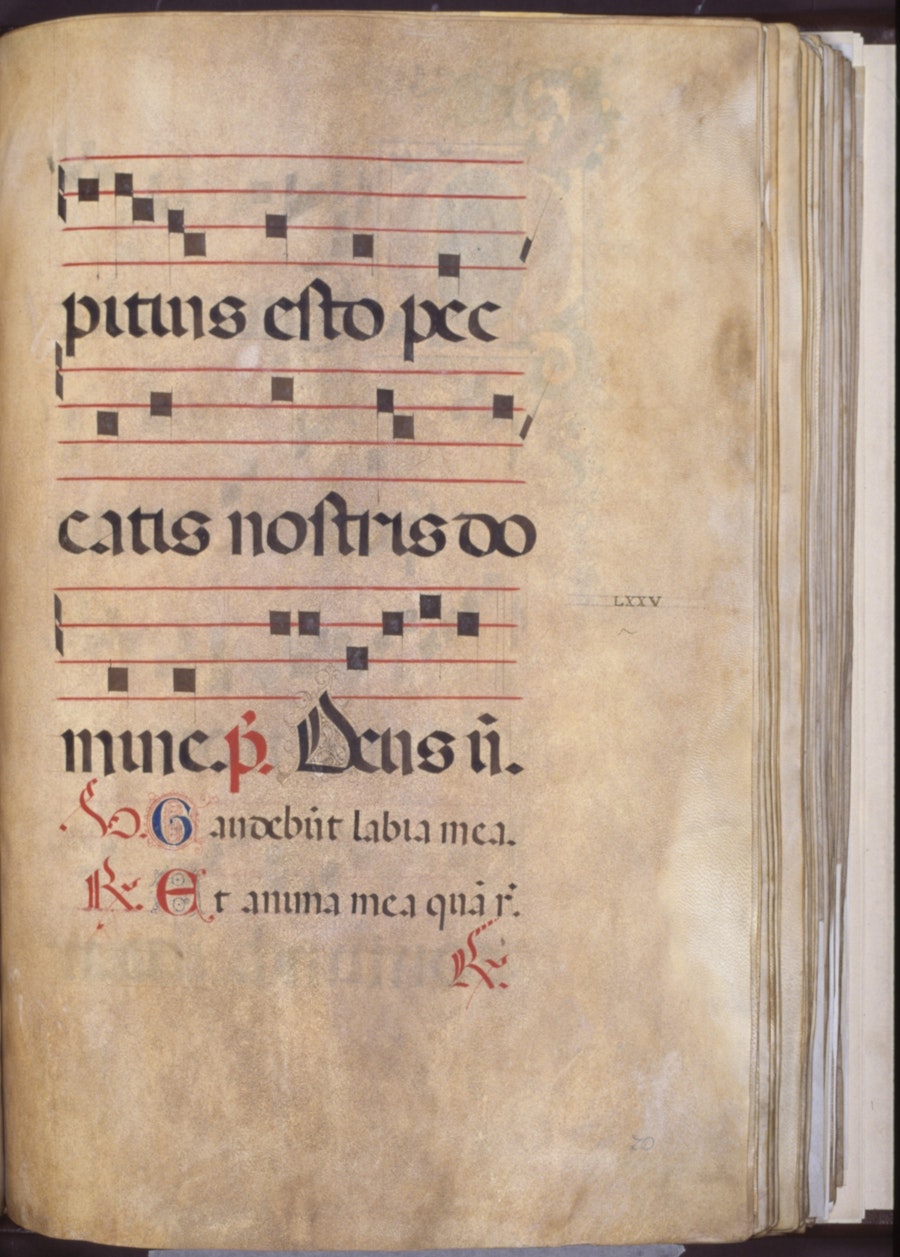 pitius esto pec
catis nostris do
mine. p̄. Deus ū.
LXXV
℣. Gaudebūt labia mea.
℟. Et anima mea quā r̄.
℟.